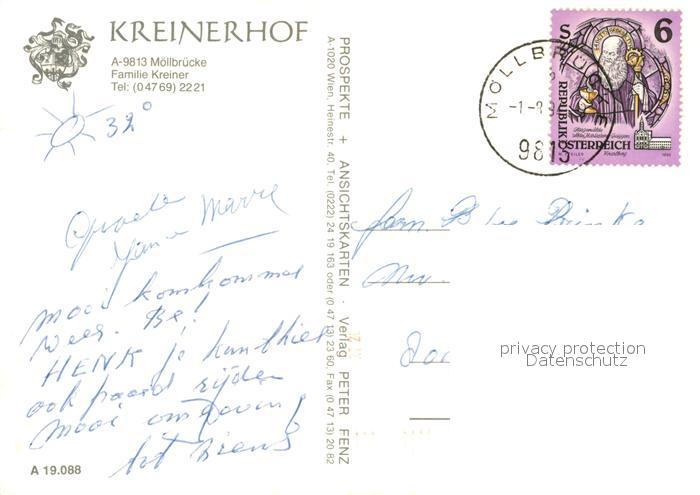 KREINERHOF
A-9813 Möllbrücke
Familie Kreiner
Tel: (0 47 69) 22 21
32°
Groete
Marie
mooi komkommer
weer. Be!
HENK je kan hier
ook paard rijden
mooi omgeven!
tot ziens
A 19.088
PROSPEKTE + ANSICHTSKARTEN · Verlag PETER FENZ
A-1020 Wien, Heinestr. 40, Tel. (0222) 24 19 163 oder (0 47 13) 23 60, Fax (0 47 13) 20 82
MÖLLBRÜCKE
9813
S 6
REPUBLIK ÖSTERREICH
Fam. B
privacy protection
Datenschutz